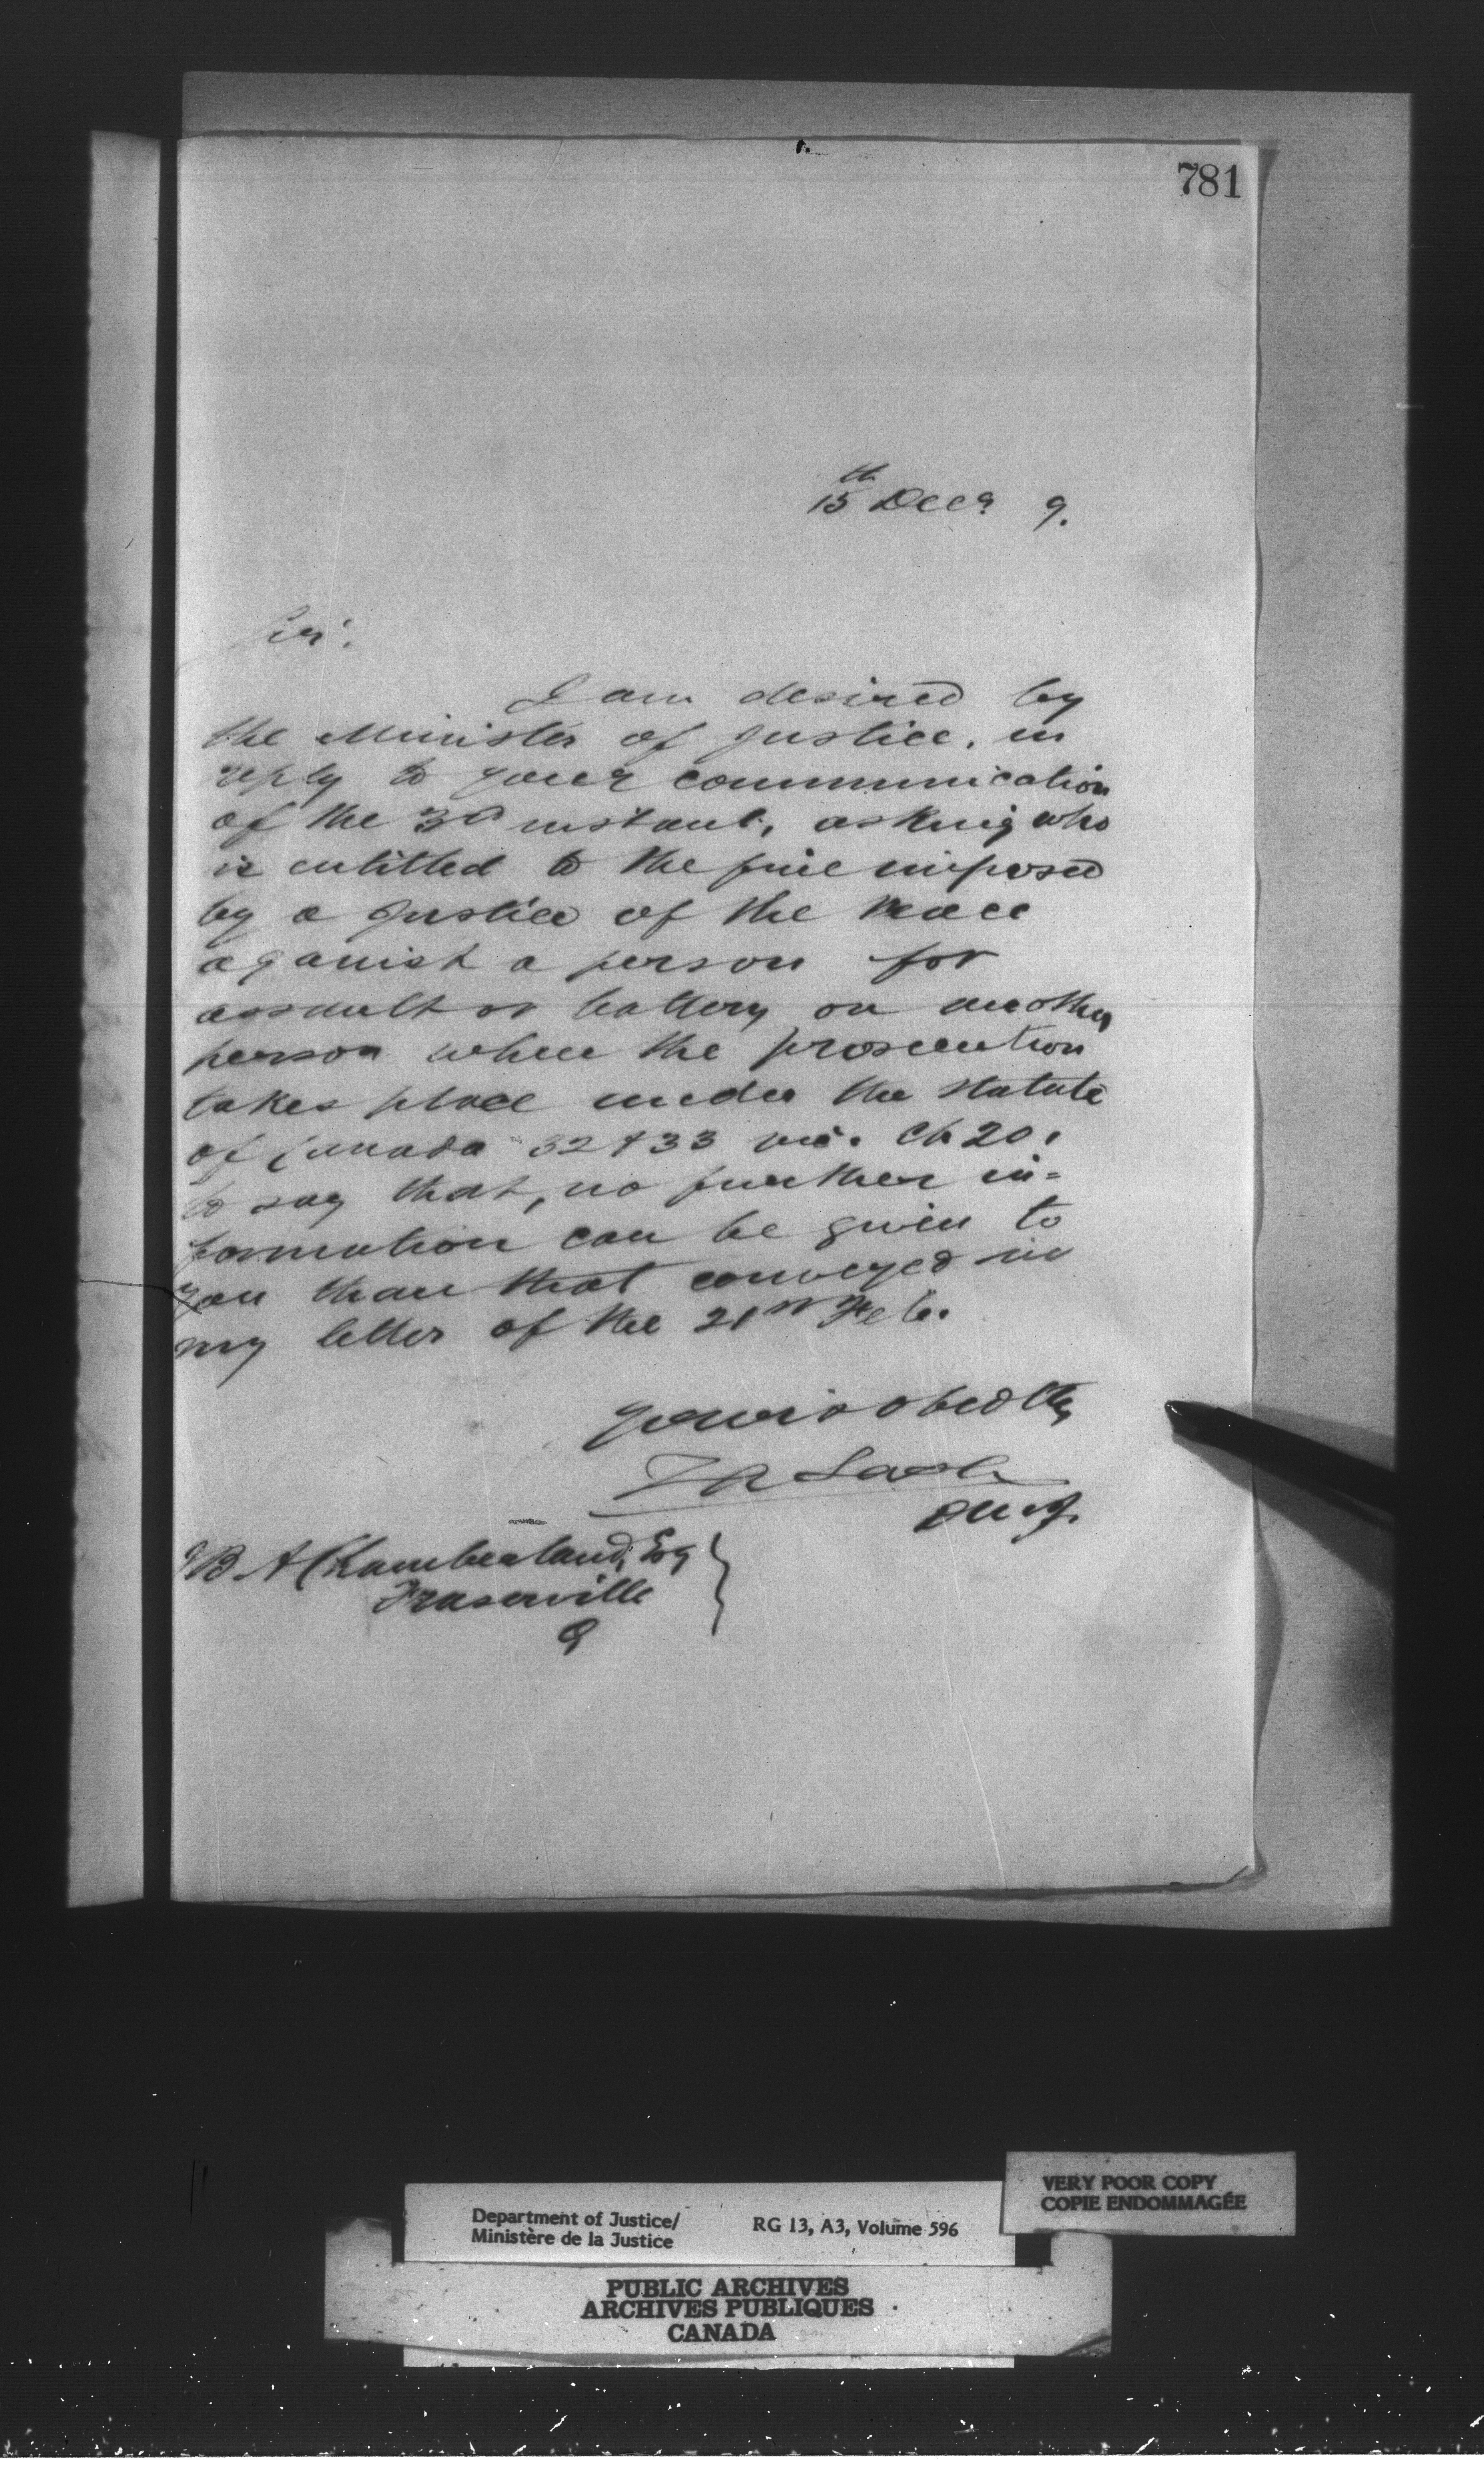 781
15th Decr 9.
Sir,
I am desired by
the Minister of Justice, in
reply to your communication
of the 3d instant, asking who
is entitled to the fine imposed
by a Justice of the Peace
against a person for
assault or battery on another
person where the prosecution
takes place under the Statute
of Canada 32 & 33 Vic. Ch 20.
to say that, no further in=
formation can be given to
you than that conveyed in
my letter of the 21st Feb.
Your obed
Z A Lash
DMJ.
B A Chamberland, Esq
Fraserville
Q
Department of Justice/
Ministère de la Justice
RG 13, A3, Volume 596
VERY POOR COPY
COPIE ENDOMMAGÉE
PUBLIC ARCHIVES
ARCHIVES PUBLIQUES
CANADA